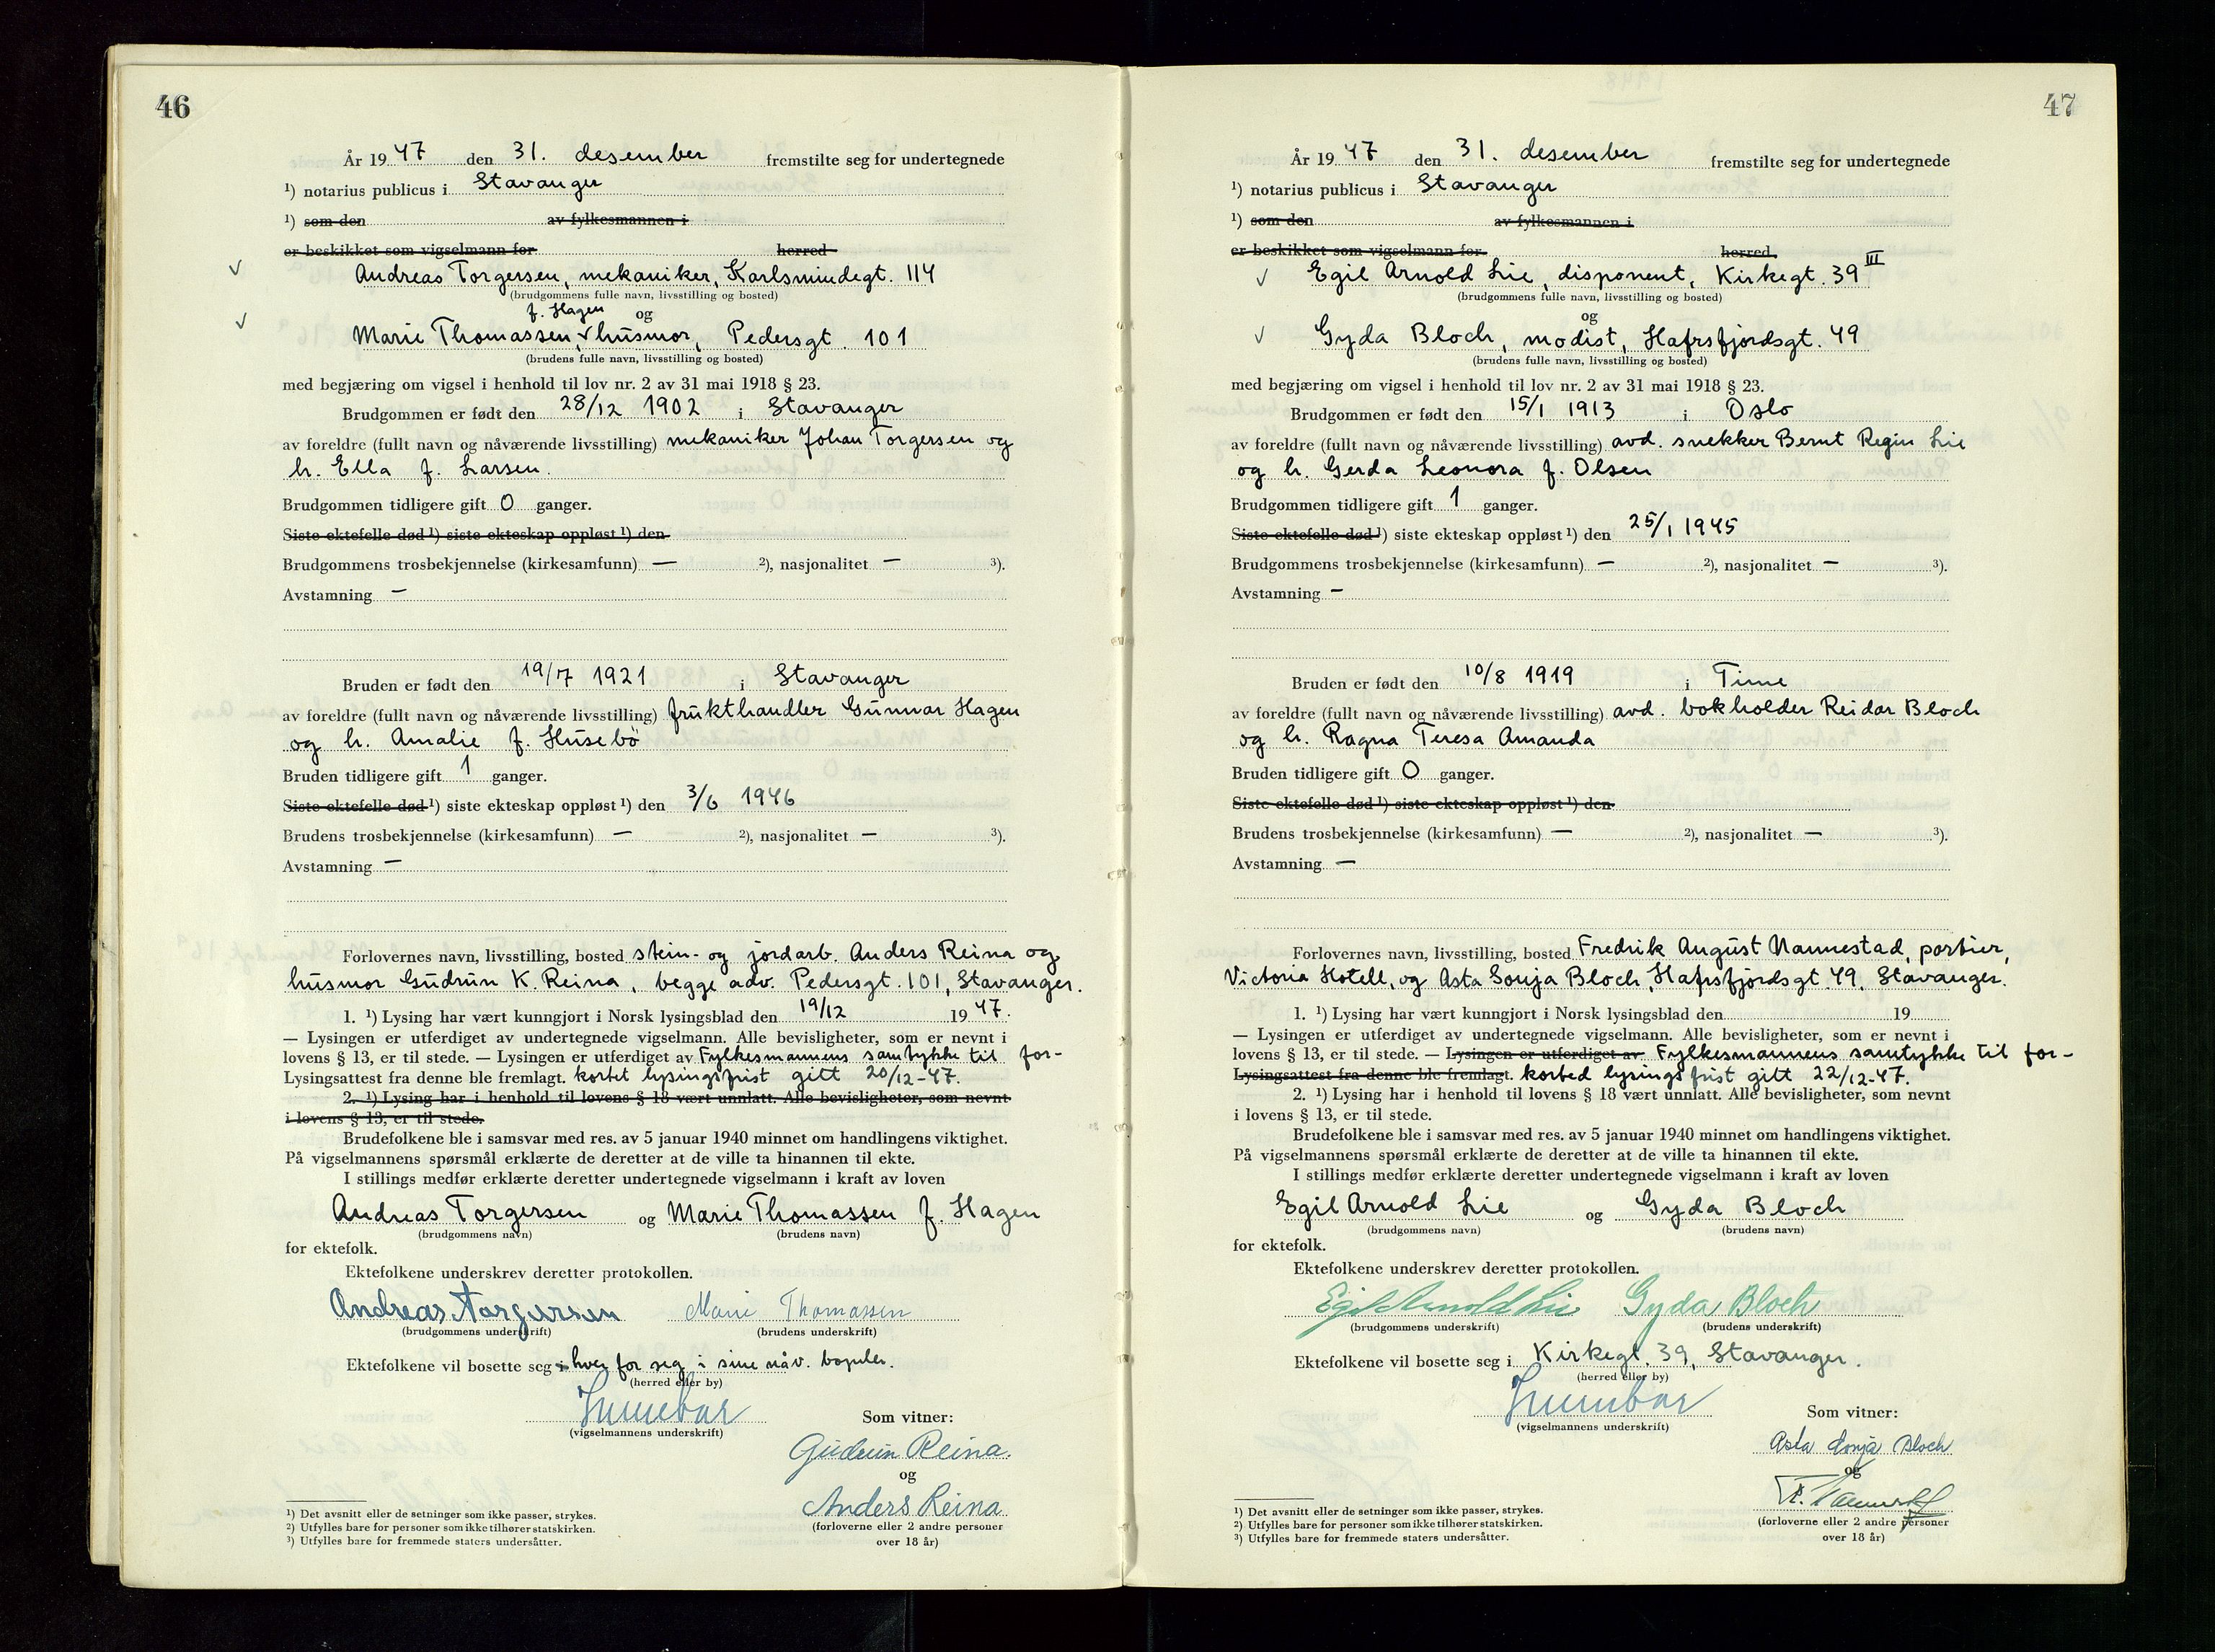 46
År 19 47 den 31. desember fremstilte seg for undertegnede
¹) notarius publicus i Stavanger
¹) som den av fylkesmannen i
er beskikket som vigselmann for herred
Andreas Torgersen, mekaniker, Karlsmindegt. 114
(brudgommens fulle navn, livsstilling og bosted)
f. Hagen og
Marie Thomassen, husmor, Pedersgt. 101
(brudens fulle navn, livsstilling og bosted)
med begjæring om vigsel i henhold til lov nr. 2 av 31 mai 1918 § 23.
Brudgommen er født den 28/12 1902 i Stavanger
av foreldre (fullt navn og nåværende livsstilling) mekaniker Johan Torgersen og
h. Ella f. Larsen.
Brudgommen tidligere gift 0 ganger.
Siste ektefelle død ¹) siste ekteskap oppløst ¹) den
Brudgommens trosbekjennelse (kirkesamfunn) — ²), nasjonalitet — ³).
Avstamning —
Bruden er født den 19/7 1921 i Stavanger
av foreldre (fullt navn og nåværende livsstilling) frukthandler Gunnar Hagen
og h. Amalie f. Husebö
Bruden tidligere gift 1 ganger.
Siste ektefelle død ¹) siste ekteskap oppløst ¹) den 3/6 1946
Brudens trosbekjennelse (kirkesamfunn) — ²), nasjonalitet — ³).
Avstamning —
Forlovernes navn, livsstilling, bosted stein- og jordarb. Anders Reina og
husmor Gudrun K. Reina, begge adr. Pedersgt. 101, Stavanger.
1. ¹) Lysing har vært kunngjort i Norsk lysingsblad den 19/12 19 47.
— Lysingen er utferdiget av undertegnede vigselmann. Alle bevisligheter, som er nevnt i
lovens § 13, er til stede. — Lysingen er utferdiget av Fylkesmannens samtykke til for-
Lysingsattest fra denne ble fremlagt. kortet lysingsfrist gitt 20/12-47.
2. ¹) Lysing har i henhold til lovens § 18 vært unnlatt. Alle bevisligheter, som nevnt
i lovens § 13, er til stede.
Brudefolkene ble i samsvar med res. av 5 januar 1940 minnet om handlingens viktighet.
På vigselmannens spørsmål erklærte de deretter at de ville ta hinannen til ekte.
I stillings medfør erklærte deretter undertegnede vigselmann i kraft av loven
Andreas Torgersen og Marie Thomassen f. Hagen
(brudgommens navn) (brudens navn)
for ektefolk.
Ektefolkene underskrev deretter protokollen.
Andreas Torgersen Marie Thomassen
(brudgommens underskrift) (brudens underskrift)
Ektefolkene vil bosette seg i hver for seg i sine nåv. bopeler.
(herred eller by)
(vigselmannens underskrift)
Som vitner:
Gudrun Reina.
og
Anders Reina
(forloverne eller 2 andre personer
over 18 år)
¹) Det avsnitt eller de setninger som ikke passer, strykes.
²) Utfylles bare for personer som ikke tilhører statskirken.
³) Utfylles bare for fremmede staters undersåtter.
47
År 19 47 den 31. desember fremstilte seg for undertegnede
¹) notarius publicus i Stavanger
¹) som den av fylkesmannen i
er beskikket som vigselmann for herred.
Egil Arnold Lie, disponent, Kirkegt. 39 III
(brudgommens fulle navn, livsstilling og bosted)
og
Gyda Bloch, modist, Hafrsfjordsgt. 49
(brudens fulle navn, livsstilling og bosted)
med begjæring om vigsel i henhold til lov nr. 2 av 31 mai 1918 § 23.
Brudgommen er født den 15/1 1913 i Oslo
av foreldre (fullt navn og nåværende livsstilling) avd. snekker Bernt Regin Lie
og h. Gerda Leonora f. Olsen
Brudgommen tidligere gift 1 ganger.
Siste ektefelle død ¹) siste ekteskap oppløst ¹) den 25/1 1945
Brudgommens trosbekjennelse (kirkesamfunn) — ²), nasjonalitet — ³).
Avstamning —
Bruden er født den 10/8 1919 i Time
av foreldre (fullt navn og nåværende livsstilling) avd. bokholder Reidar Bloch
og h. Ragna Teresa Amanda
Bruden tidligere gift 0 ganger.
Siste ektefelle død ¹) siste ekteskap oppløst ¹) den
Brudens trosbekjennelse (kirkesamfunn) — ²), nasjonalitet — ³).
Avstamning —
Forlovernes navn, livsstilling, bosted Fredrik August Nannestad, portier,
Victoria Hotell, og Asta Sonja Bloch, Hafrsfjordsgt. 49, Stavanger.
1. ¹) Lysing har vært kunngjort i Norsk lysingsblad den 19
— Lysingen er utferdiget av undertegnede vigselmann. Alle bevisligheter, som er nevnt i
lovens § 13, er til stede. — Lysingen er utferdiget av Fylkesmannens samtykke til for-
Lysingsattest fra denne ble fremlagt. korted lysingsfrist gitt 22/12-47.
2. ¹) Lysing har i henhold til lovens § 18 vært unnlatt. Alle bevisligheter, som nevnt
i lovens § 13, er til stede.
Brudefolkene ble i samsvar med res. av 5 januar 1940 minnet om handlingens viktighet.
På vigselmannens spørsmål erklærte de deretter at de ville ta hinannen til ekte.
I stillings medfør erklærte deretter undertegnede vigselmann i kraft av loven
Egil Arnold Lie og Gyda Bloch
(brudgommens navn) (brudens navn)
for ektefolk.
Ektefolkene underskrev deretter protokollen.
Egil Arnold Lie Gyda Bloch
(brudgommens underskrift) (brudens underskrift)
Ektefolkene vil bosette seg i Kirkegt. 39, Stavanger.
(herred eller by)
(vigselmannens underskrift)
Som vitner:
Asta Sonja Bloch
og
(forloverne eller 2 andre personer
over 18 år)
¹) Det avsnitt eller de setninger som ikke passer, strykes.
²) Utfylles bare for personer som ikke tilhører statskirken.
³) Utfylles bare for fremmede staters undersåtter.